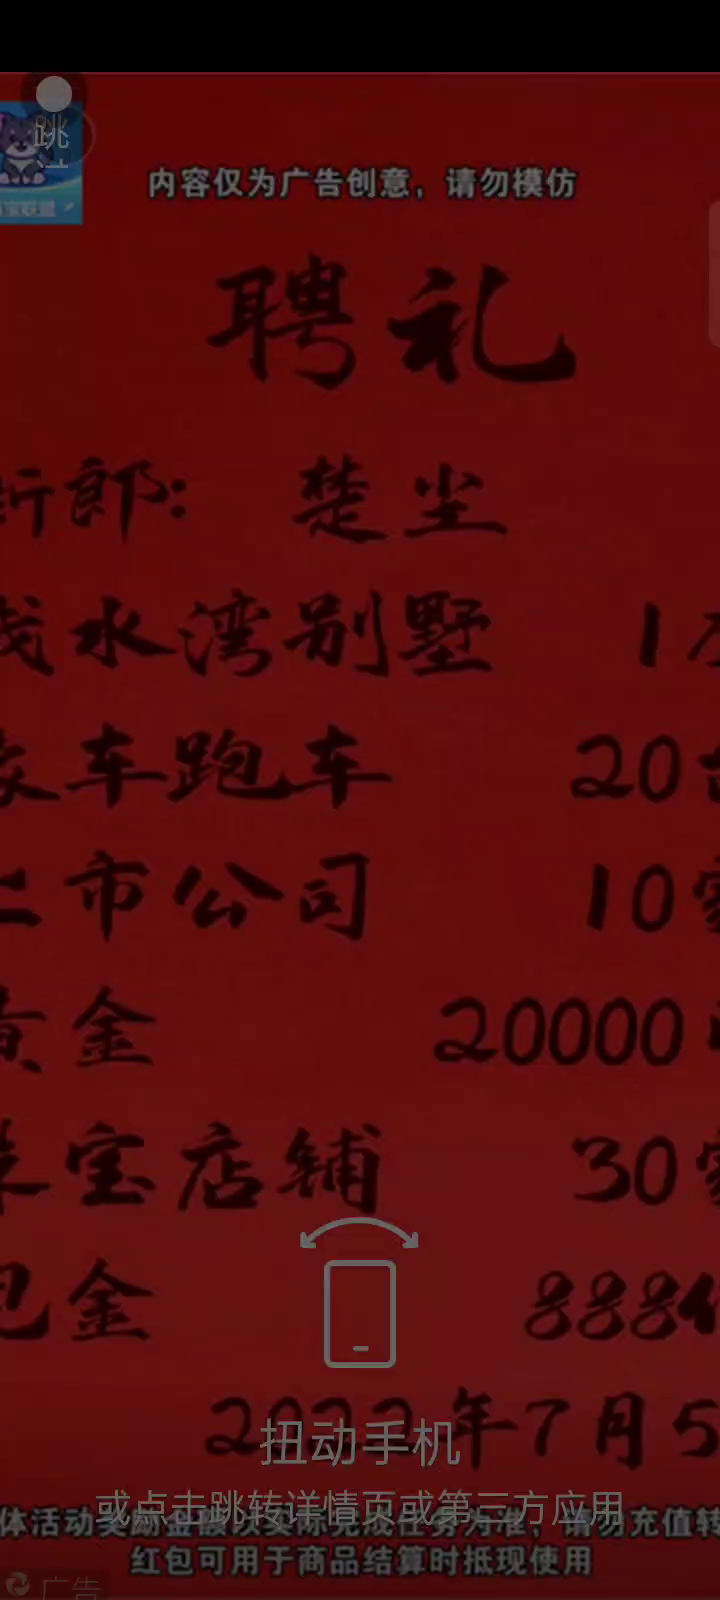 跳
内容仅为广告创意，请勿模仿
聘礼
新郎：楚尘
浅水湾别墅 1
豪车跑车 20台
上市公司 10家
黄金 20000
珠宝店铺 30家
现金 888亿
2022年7月5
扭动手机
或点击跳转详情页或第三方应用
体活动奖励金额以实际完成任务为准，请勿充值转
红包可用于商品结算时抵现使用
广告